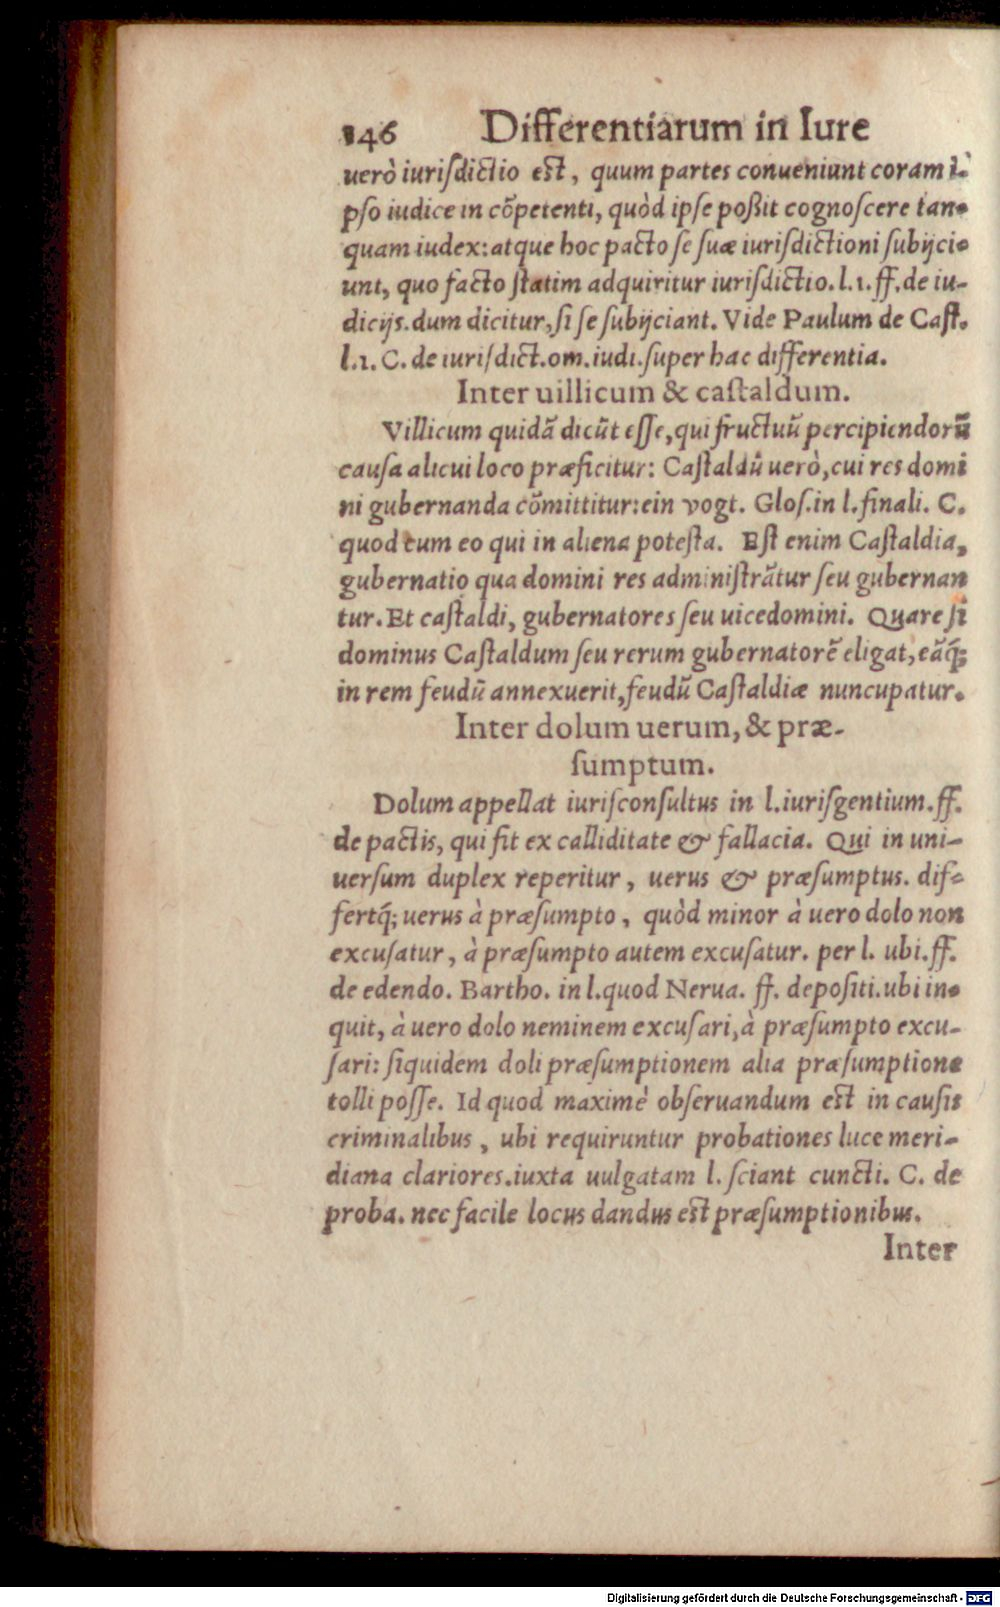 146 Differentiarum in Iure
uerò iurisdictio est, quum partes conueniunt coram i-
pso iudice in cõpetenti, quòd ipse poßit cognoscere tan-
quam iudex: atque hoc pacto se suæ iurisdictioni subijci-
unt, quo facto statim adquiritur iurisdictio. l.1. ff. de iu-
dicijs. dum dicitur, si se subijciant. Vide Paulum de Cast.
l.1. C. de iurisdict. om. iudi. super hac differentia.
Inter uillicum & castaldum.
Villicum quidã dicũt esse, qui fructuũ percipiendorũ
causa alicui loco præficitur: Castaldũ uerò, cui res domi
ni gubernanda cõmittitur: ein vogt. Glos. in l. finali. C.
quod cum eo qui in aliena potesta. Est enim Castaldia,
gubernatio qua domini res administrãtur seu gubernan
tur. Et castaldi, gubernatores seu uicedomini. Quare si
dominus Castaldum seu rerum gubernatorẽ eligat, eãq́;
in rem feudũ annexuerit, feudũ Castaldiæ nuncupatur.
Inter dolum uerum, & præ-
sumptum.
Dolum appellat iurisconsultus in l. iurisgentium. ff.
de pactis, qui fit ex calliditate & fallacia. Qui in uni-
uersum duplex reperitur, uerus & præsumptus. dif-
fertq́; uerus à præsumpto, quòd minor à uero dolo non
excusatur, à præsumpto autem excusatur. per l. ubi. ff.
de edendo. Bartho. in l. quod Nerua. ff. depositi. ubi in-
quit, à uero dolo neminem excusari, à præsumpto excu-
sari: siquidem doli præsumptionem alia præsumptione
tolli posse. Id quod maximè obseruandum est in causis
criminalibus, ubi requiruntur probationes luce meri-
diana clariores. iuxta uulgatam l. sciant cuncti. C. de
proba. nec facile locus dandus est præsumptionibus.
Inter
Digitalisierung gefördert durch die Deutsche Forschungsgemeinschaft - DFG